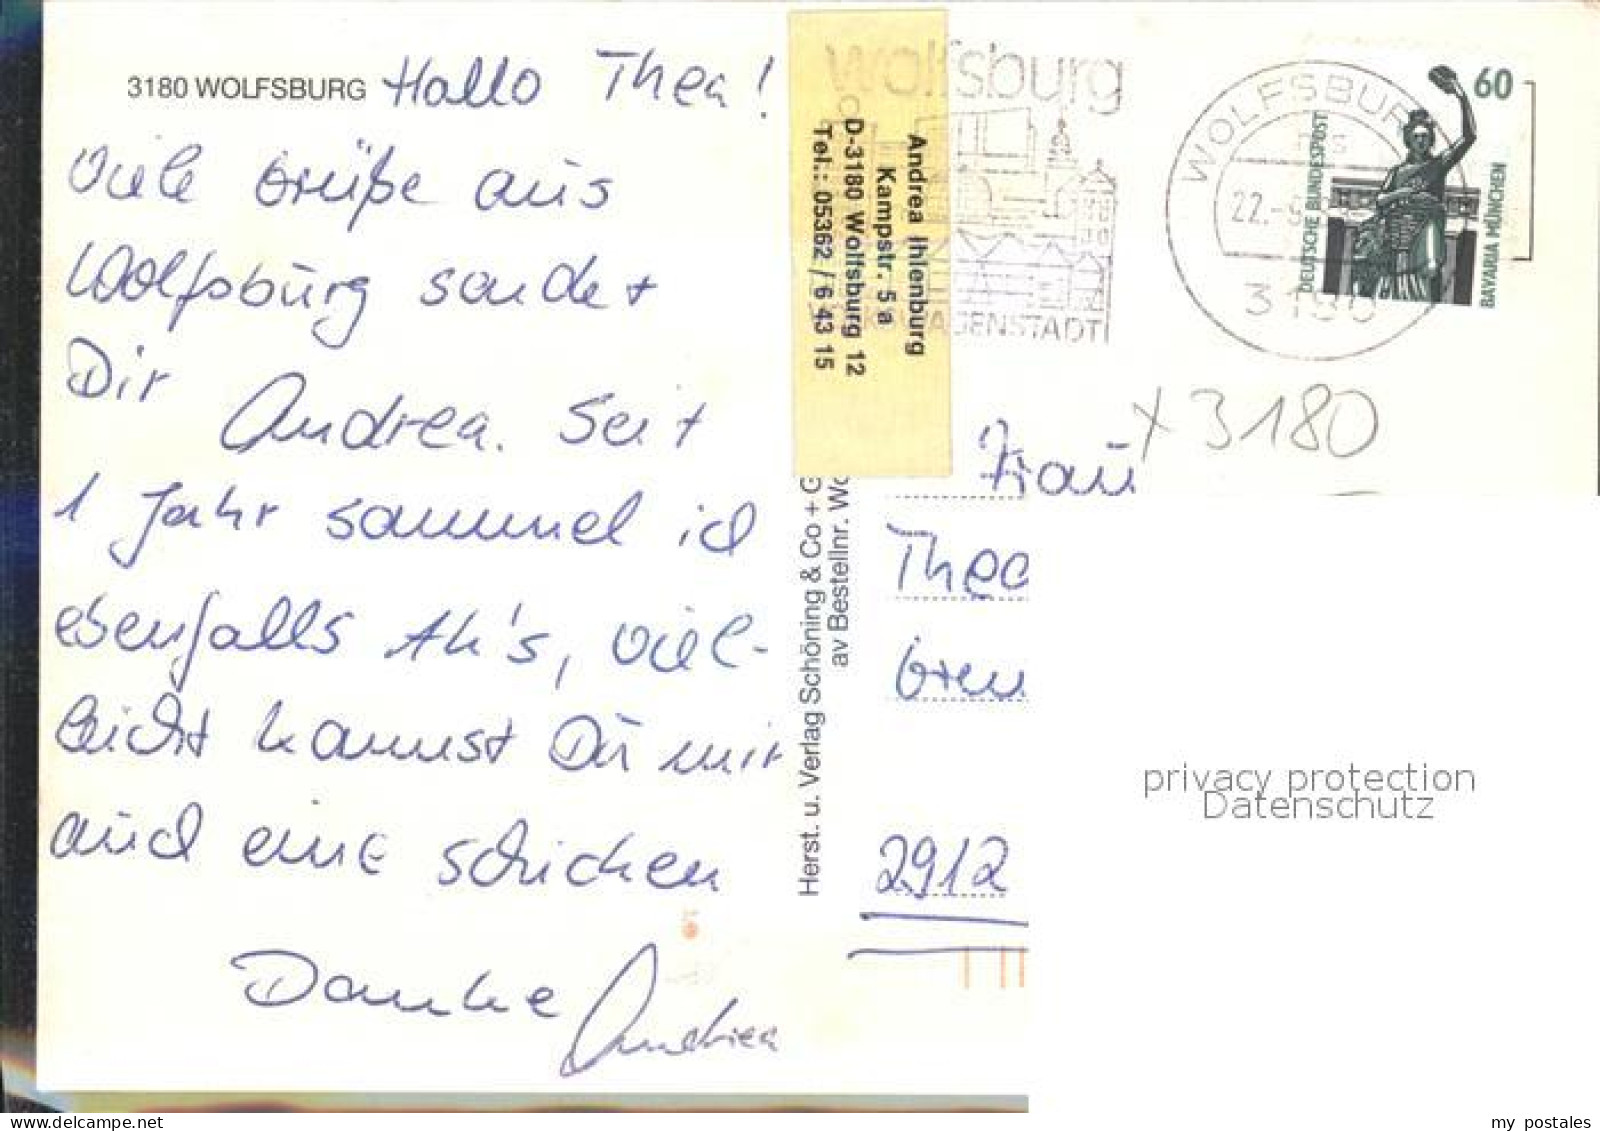 3180 WOLFSBURG Hallo Thea!
Viele Grüße aus
Wolfsburg sendet
Dir Andrea. Seit
1 Jahr sammel ich
ebenfalls AK's, viel-
leicht kannst Du mir
auch eine schicken
Danke Andrea
Andrea Ihlenburg
Kampstr. 5a
D-3180 Wolfsburg 12
Tel.: 05362 / 6 43 15
wolfsburg
GENSTADT
WOLFSBUR
22.-
3180
60
DEUTSCHE BUNDESPOST
BAVARIA MÜNCHEN
x 3180
Herst. u. Verlag Schöning & Co + G
av Bestellnr. Wo
Frau
Thea
Gren
2912
privacy protection
Datenschutz
my postales